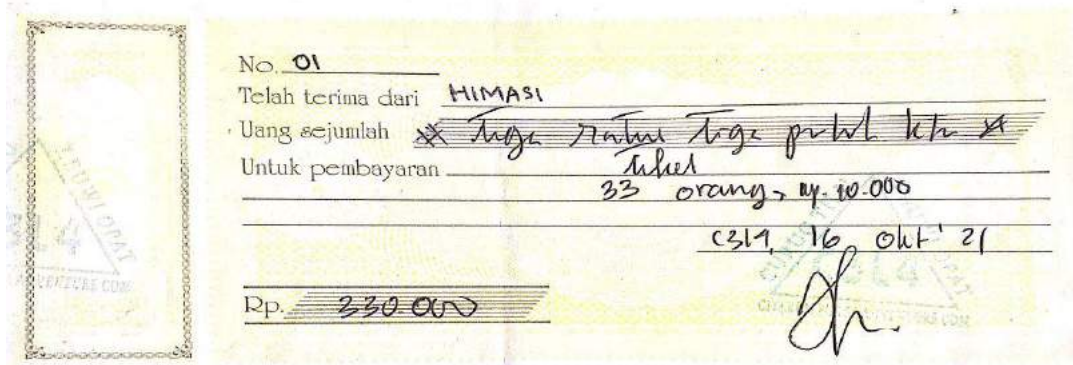 No. 01
Telah terima dari HIMASI
Uang sejumlah tiga ratus tiga puluh
Untuk pembayaran tiket
33 orang, Rp. 10.000
C3L4, 16 Okt' 21
Rp. 330.000
LEUWI OPAT